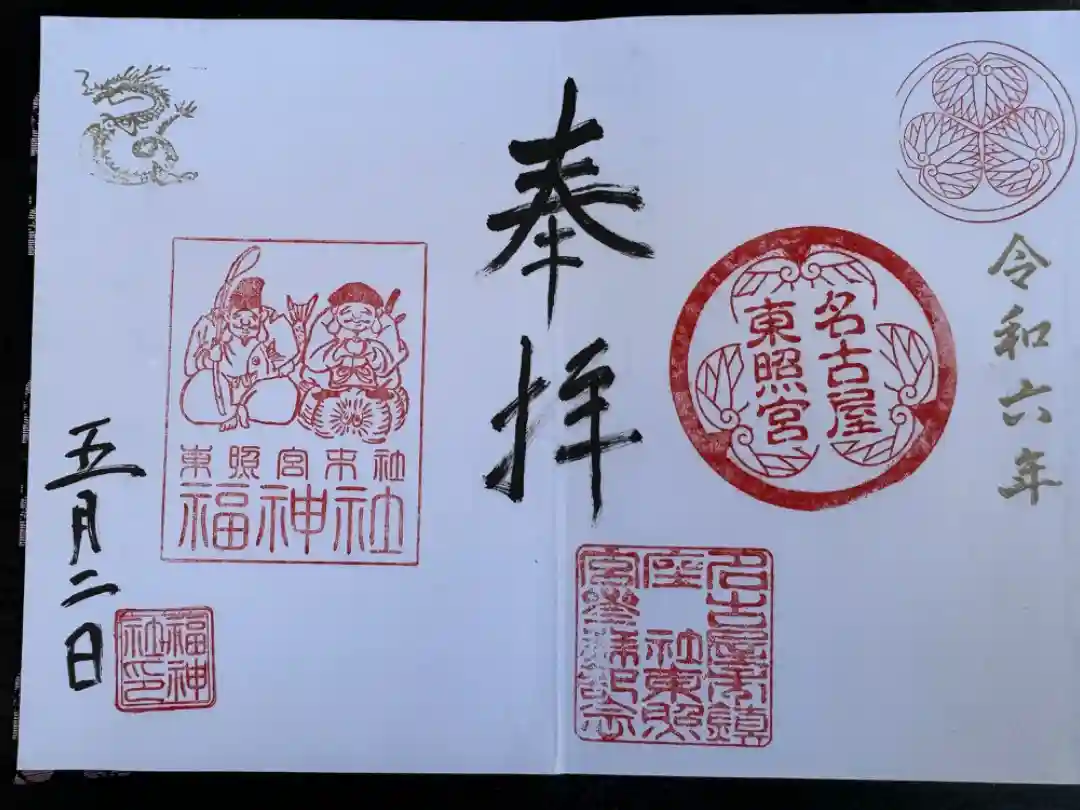 令和六年
名古屋
東照宮
名古屋市鎮
座 社東照
宮參拝記念
奉拝
東照宮末社
福神社
福神
社印
五月二日